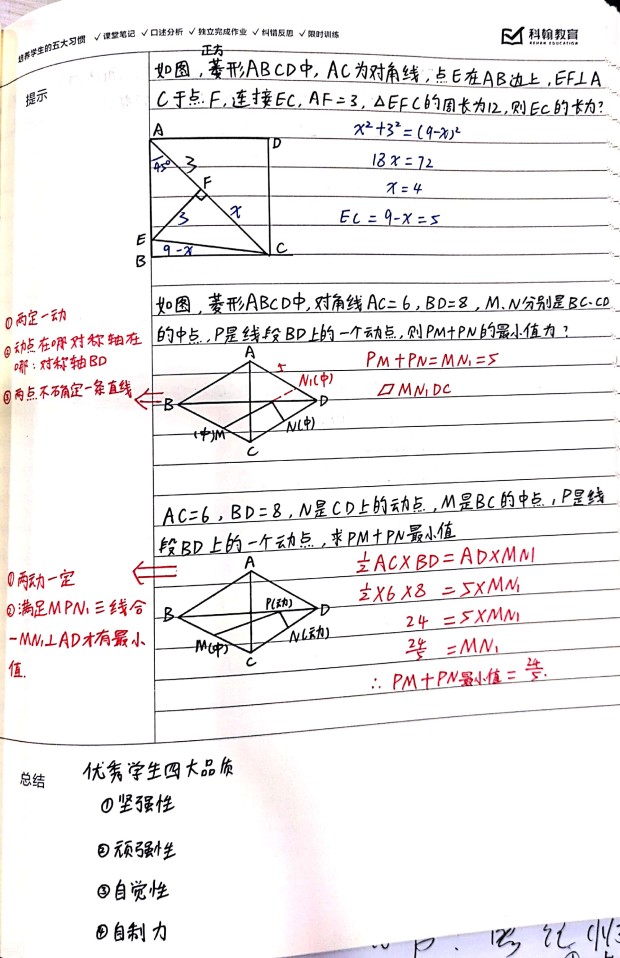 培养学生的五大习惯 ✓课堂笔记 ✓口述分析 ✓独立完成作业 ✓纠错反思 ✓限时训练
科翰教育
KEHAN EDUCATION
提示
正方
如图，菱形ABCD中，AC为对角线，点E在AB边上，EF⊥A
C于点F，连接EC，AF=3，△EFC的周长为12，则EC的长为？
x²+3²=(9-x)²
18x=72
x=4
EC=9-x=5
A
D
45°
3
F
3
x
E
9-x
B
C
如图，菱形ABCD中，对角线AC=6，BD=8，M、N分别是BC、CD
的中点，P是线段BD上的一个动点，则PM+PN的最小值为？
①两定一动
②动点在哪对称轴在
哪：对称轴BD
③两点不确定一条直线
PM+PN=MN₁=5
▱MN₁DC
A
5
N₁(中)
B
D
(中)M
N(中)
C
AC=6，BD=8，N是CD上的动点，M是BC的中点，P是线
段BD上的一个动点，求PM+PN最小值
①两动一定
②满足MPN₁三线合
一MN₁⊥AD才有最小
值.
½AC×BD=AD×MN₁
½×6×8=5×MN₁
24=5×MN₁
24/5=MN₁
∴PM+PN最小值=24/5.
A
B
P(动)
D
M(中)
N(动)
C
总结
优秀学生四大品质
①坚强性
②顽强性
③自觉性
④自制力